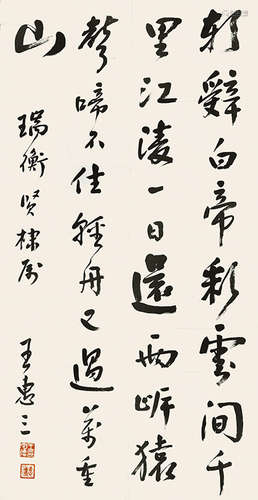 朝辞白帝彩云间千
里江陵一日还两岸猿
声啼不住轻舟已过万重
山
瑞衡贤棣属
王惠三